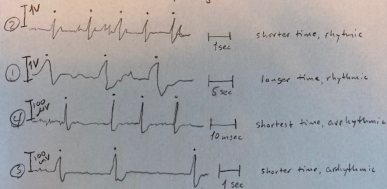 ② 1V 1sec shorter time, rhythmic
① 1V 5sec longer time, rhythmic
④ 100 μV 10msec shortest time, arrhythmic
③ 100 μV 1 sec shorter time, arrhythmic